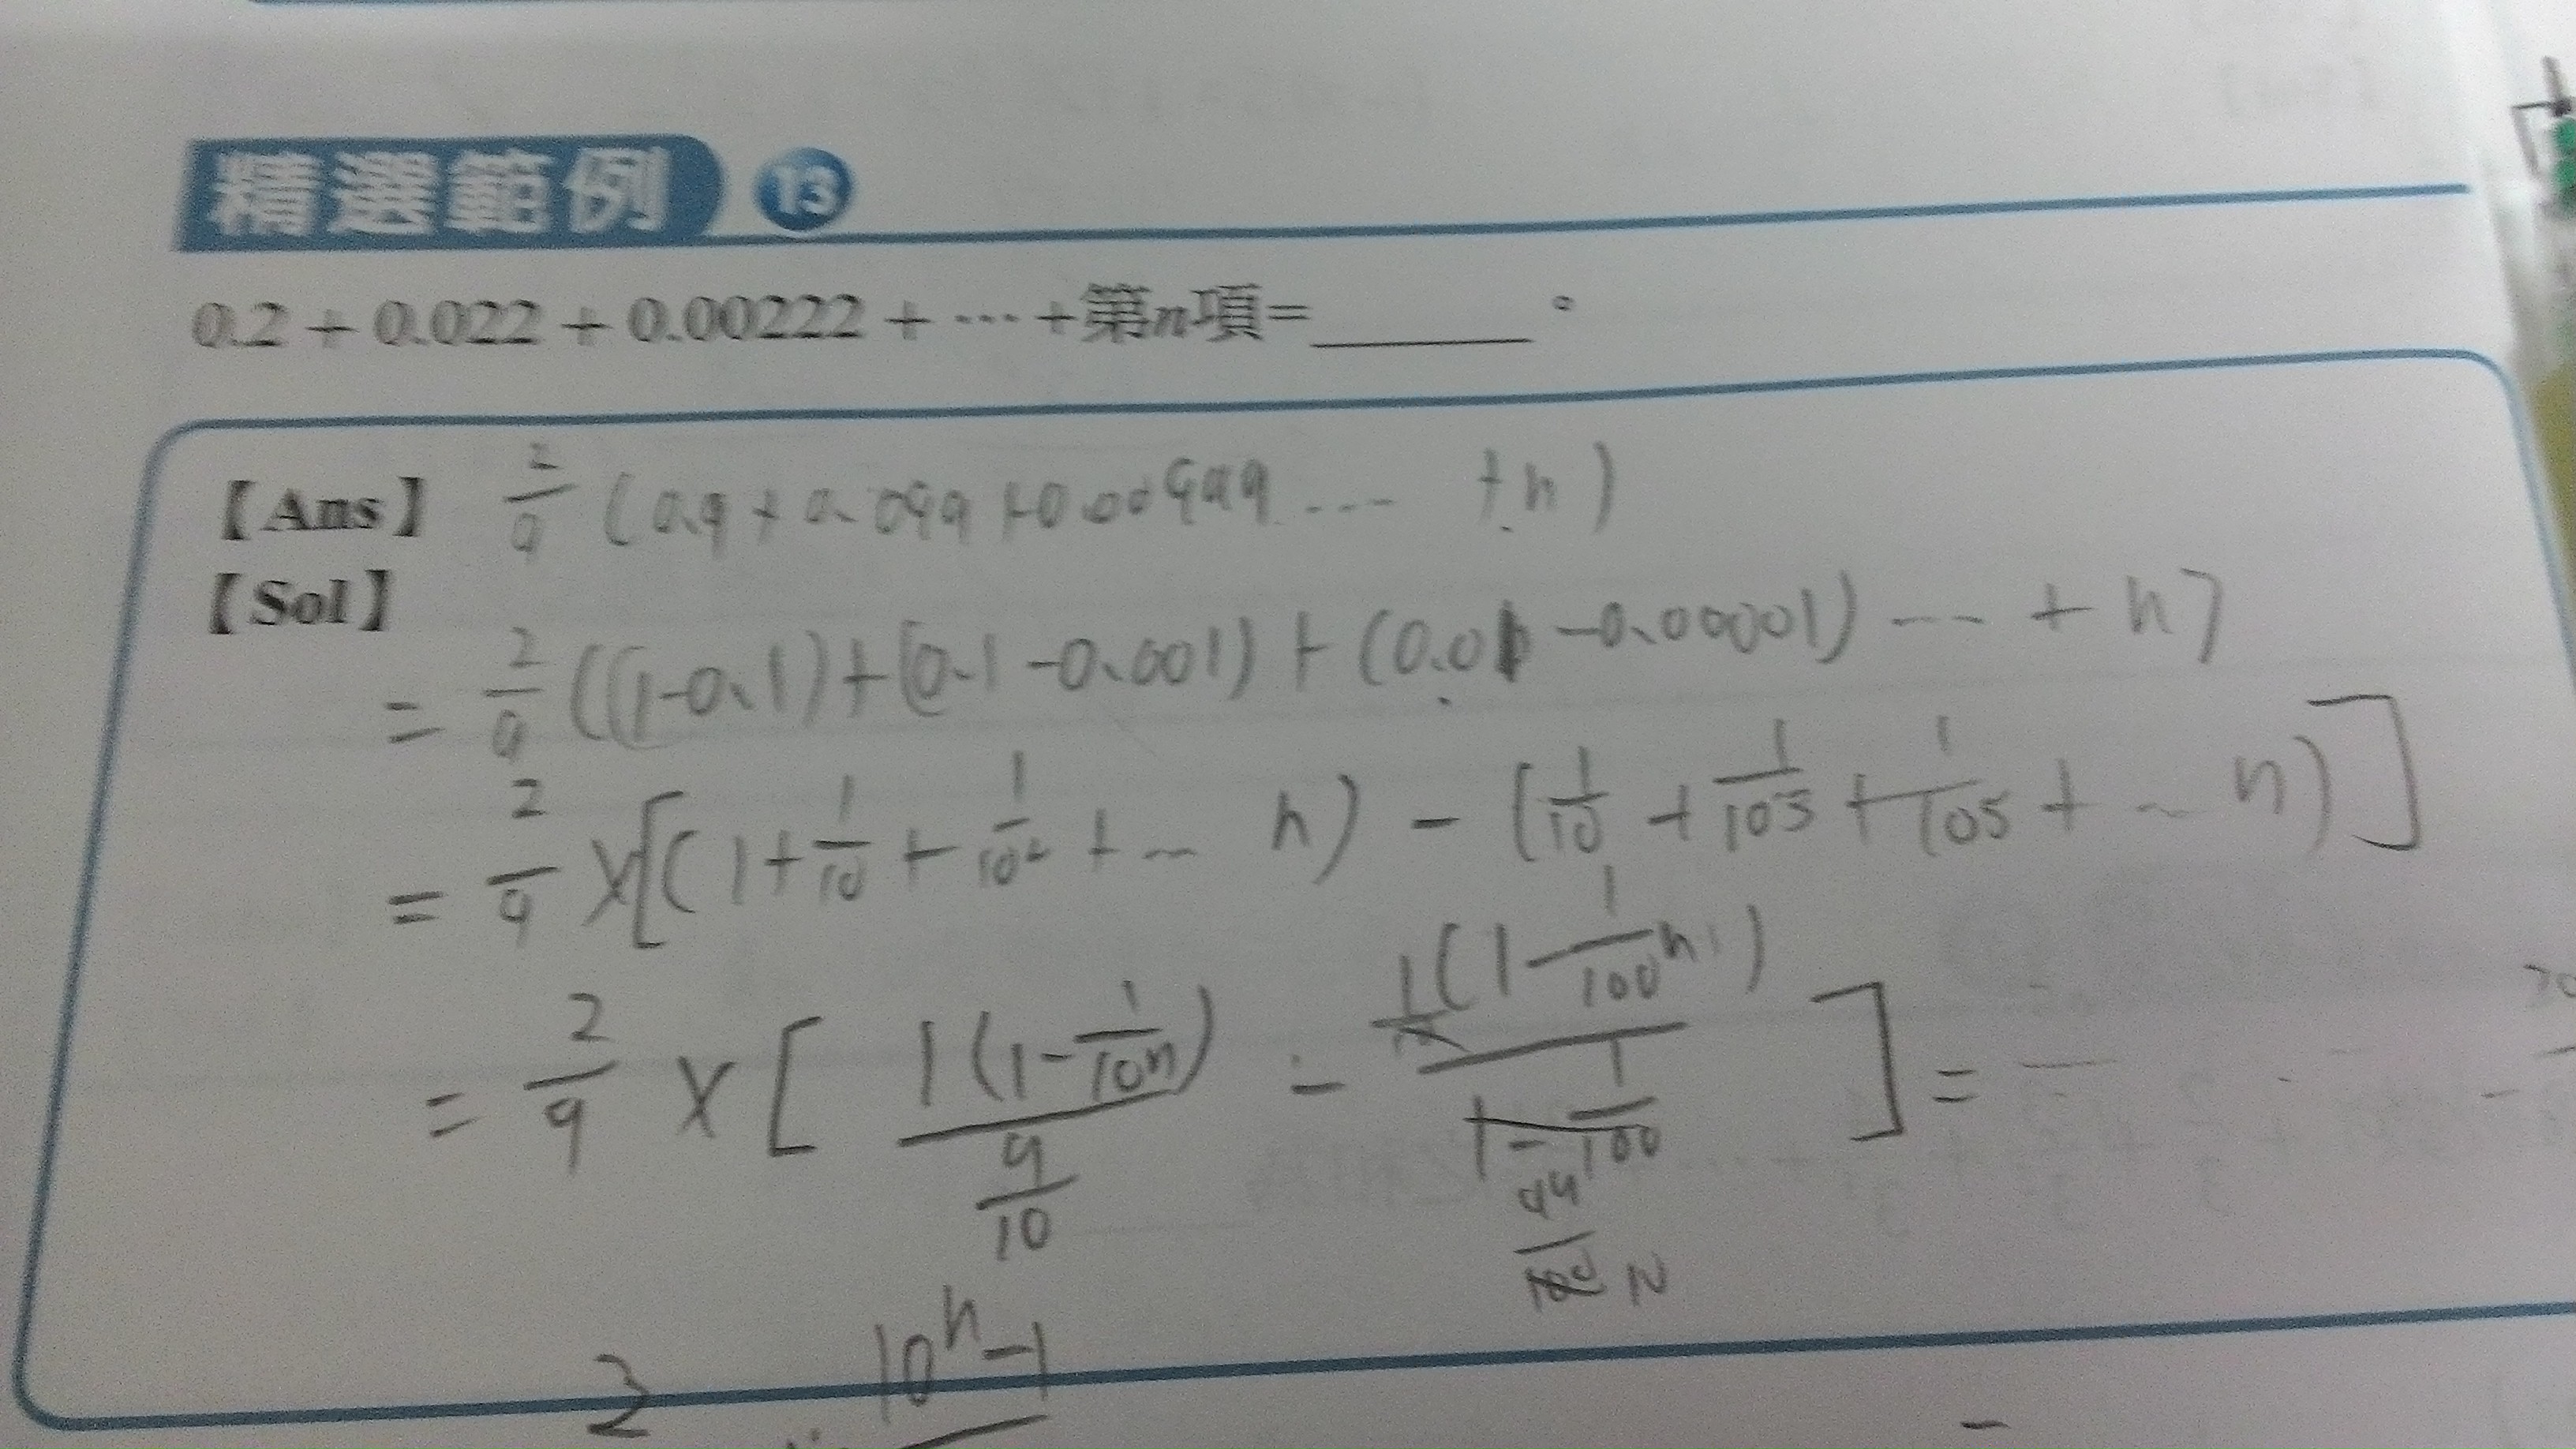 精選範例 13
0.2 + 0.022 + 0.00222 + … +第n項=______。
【Ans】 2/9 (0.9 + 0.099 + 0.00999 ... + n)
【Sol】
= 2/9 ((1-0.1)+(0.1-0.001)+(0.01-0.00001) ... + n)
= 2/9 ×[(1+1/10+1/10²+... n) - (1/10+1/10³+1/10⁵+... n)]
= 2/9 × [ 1(1-1/10ⁿ) / (9/10) - 1/10(1-1/100ⁿ) / (1-1/100) ] =
99
2 10ⁿ-1